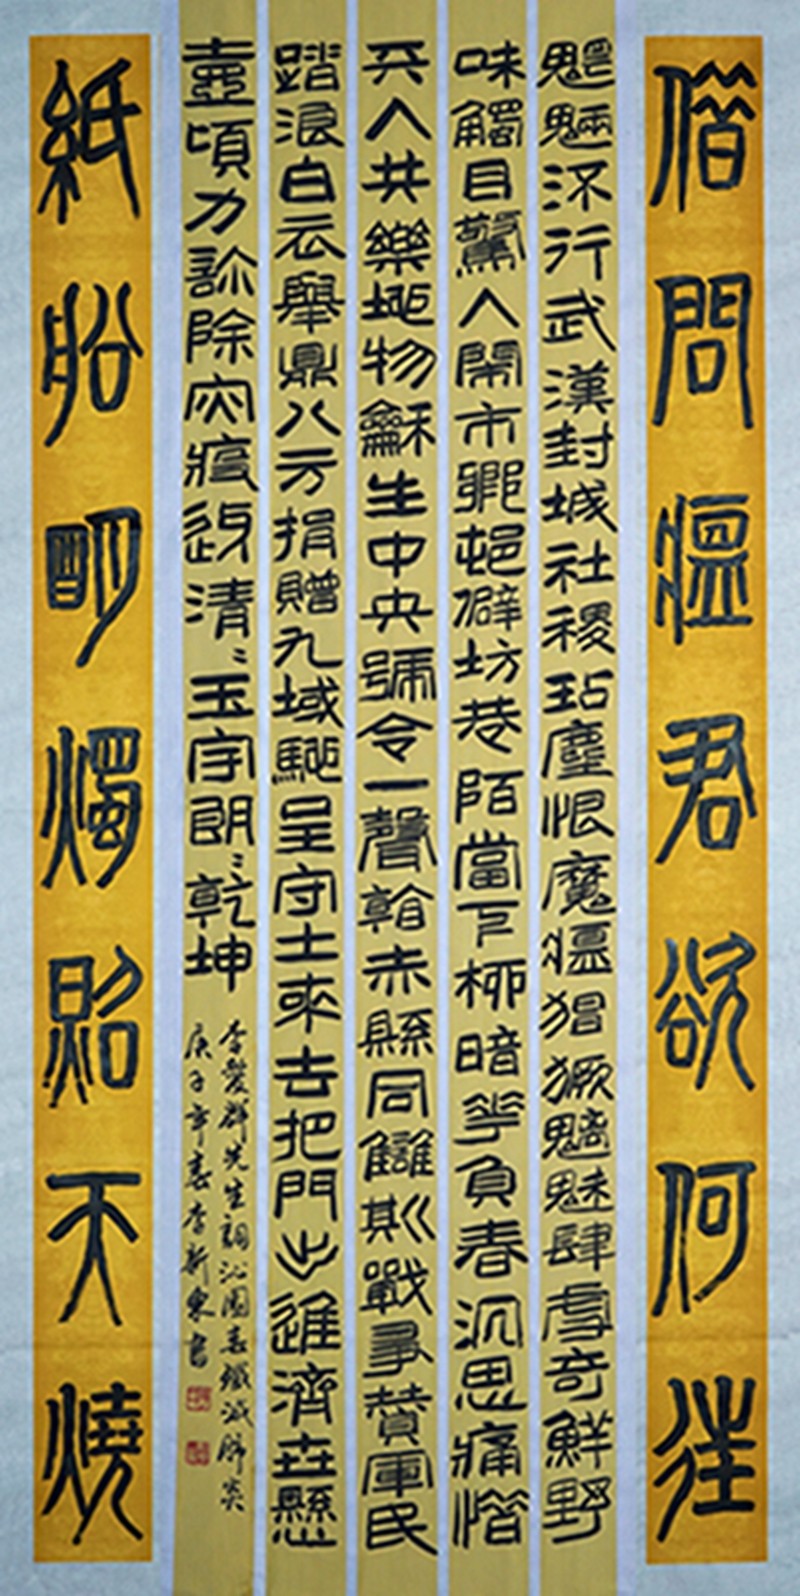 借問瘟君欲何往
魍魎行武漢封城社稷玷塵恨魔瘟猖獗魑魅肆虐奇鮮野
味觸目驚人鬧市鄉邨僻坊巷陌當下柳暗華負春沉思痛惜
天人共樂地物龢生中央號令一聲赤縣同讎戰爭贊軍民
踏浪白云舉鼎八方捐贈九域馳呈守土來去把門出進濟世懸
壺頃力診除灾疫清〻玉宇朗〻乾坤
李發群先生詞沁園春殲滅肺炎
庚子年春李新東書
紙船明燭照天燒